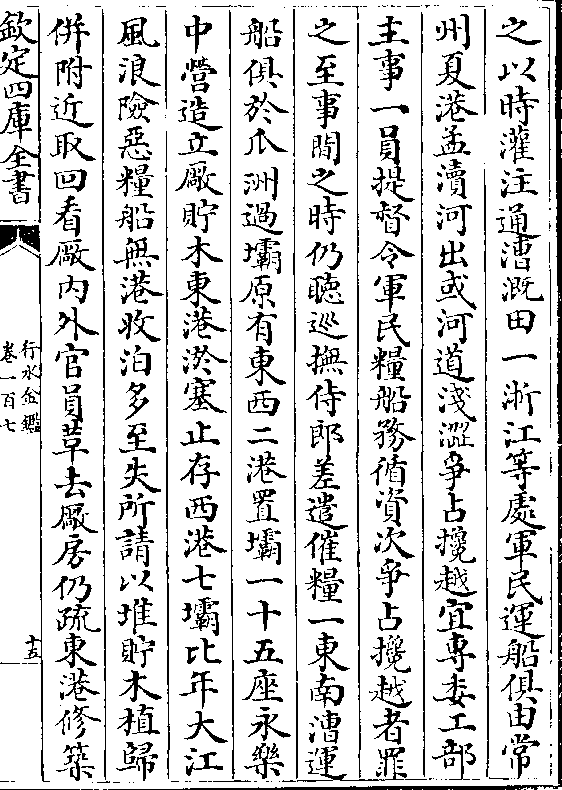 之以時灌注通漕溉田一浙江等處軍民運船俱由常
州夏港孟瀆河出或河道淺澀爭占攙越宜專委工部
主事一員提督令軍民糧船務循資次爭占攙越者罪
之至事閒之時仍聽巡撫侍郎差遣催糧一東南漕運
船俱於瓜洲過壩原有東西二港置壩一十五座永樂
中營造立厰貯木東港淤塞止存西港七壩比年大江
風浪險惡糧船無港收泊多至失所請以堆貯木植歸
併附近取回看厰内外官員革去厰房仍疏東港修築
欽定四庫全書
行水金鑑
卷一百七
十五